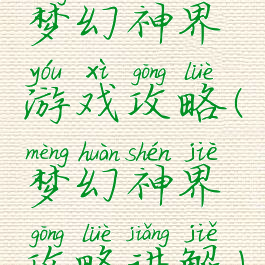 梦幻神界
yóu xì gōng lüè
游戏攻略(
mèng huàn shén jiè
梦幻神界
gōng lüè jiǎng jiě
攻略讲解)